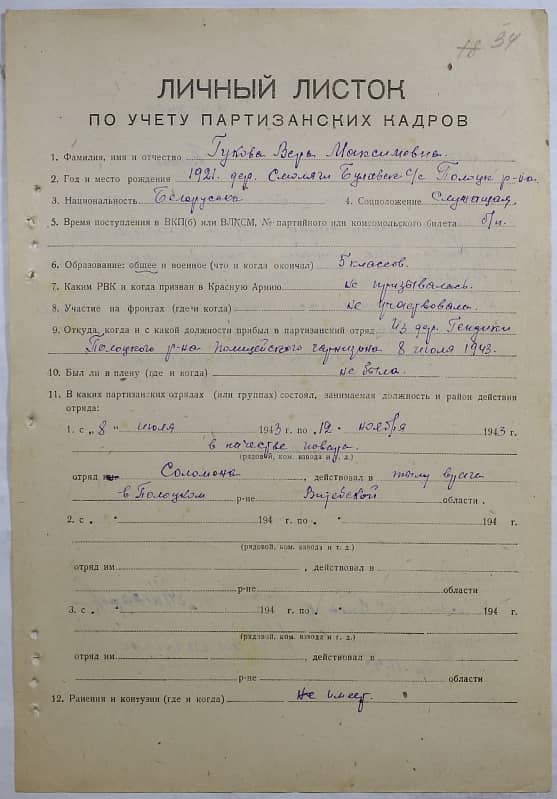 18 34
ЛИЧНЫЙ ЛИСТОК
ПО УЧЕТУ ПАРТИЗАНСКИХ КАДРОВ
1. Фамилия, имя и отчество Гукова Вера Максимовна
2. Год и место рождения 1921. дер. Смоляги с/с Полоцк р-на
3. Национальность Белоруска 4. Соцположение Служащая.
5. Время поступления в ВКП(б) или ВЛКСМ, № партийного или комсомольского билета б/п.
6. Образование: общее и военное (что и когда окончил) 5 классов.
7. Каким РВК и когда призван в Красную Армию не призывалась.
8. Участие на фронтах (где и когда) не участвовала.
9. Откуда, когда и с какой должности прибыл в партизанский отряд Из дер. Гендики
Полоцкого р-на полицейского гарнизона 8 июля 1943.
10. Был ли в плену (где и когда) не была.
11. В каких партизанских отрядах (или группах) состоял, занимаемая должность и район действия
отряда:
1. с „8" июля 1943 г. по „12" ноября 1943 г.
в качестве повара.
(рядовой, ком. взвода и т. д.)
отряд им Соломона, действовал в тылу врага
в Полоцком р-не Витебской области.
2. с „ " 194 г. по „ " 194 г.
(рядовой, ком. взвода и т. д.)
отряд им , действовал в
р-не области
3. с „ " 194 г. по „ " 194 г.
(рядовой, ком. взвода и т. д.)
отряд им , действовал в
р-не области
12. Ранения и контузии (где и когда) Не имеет.